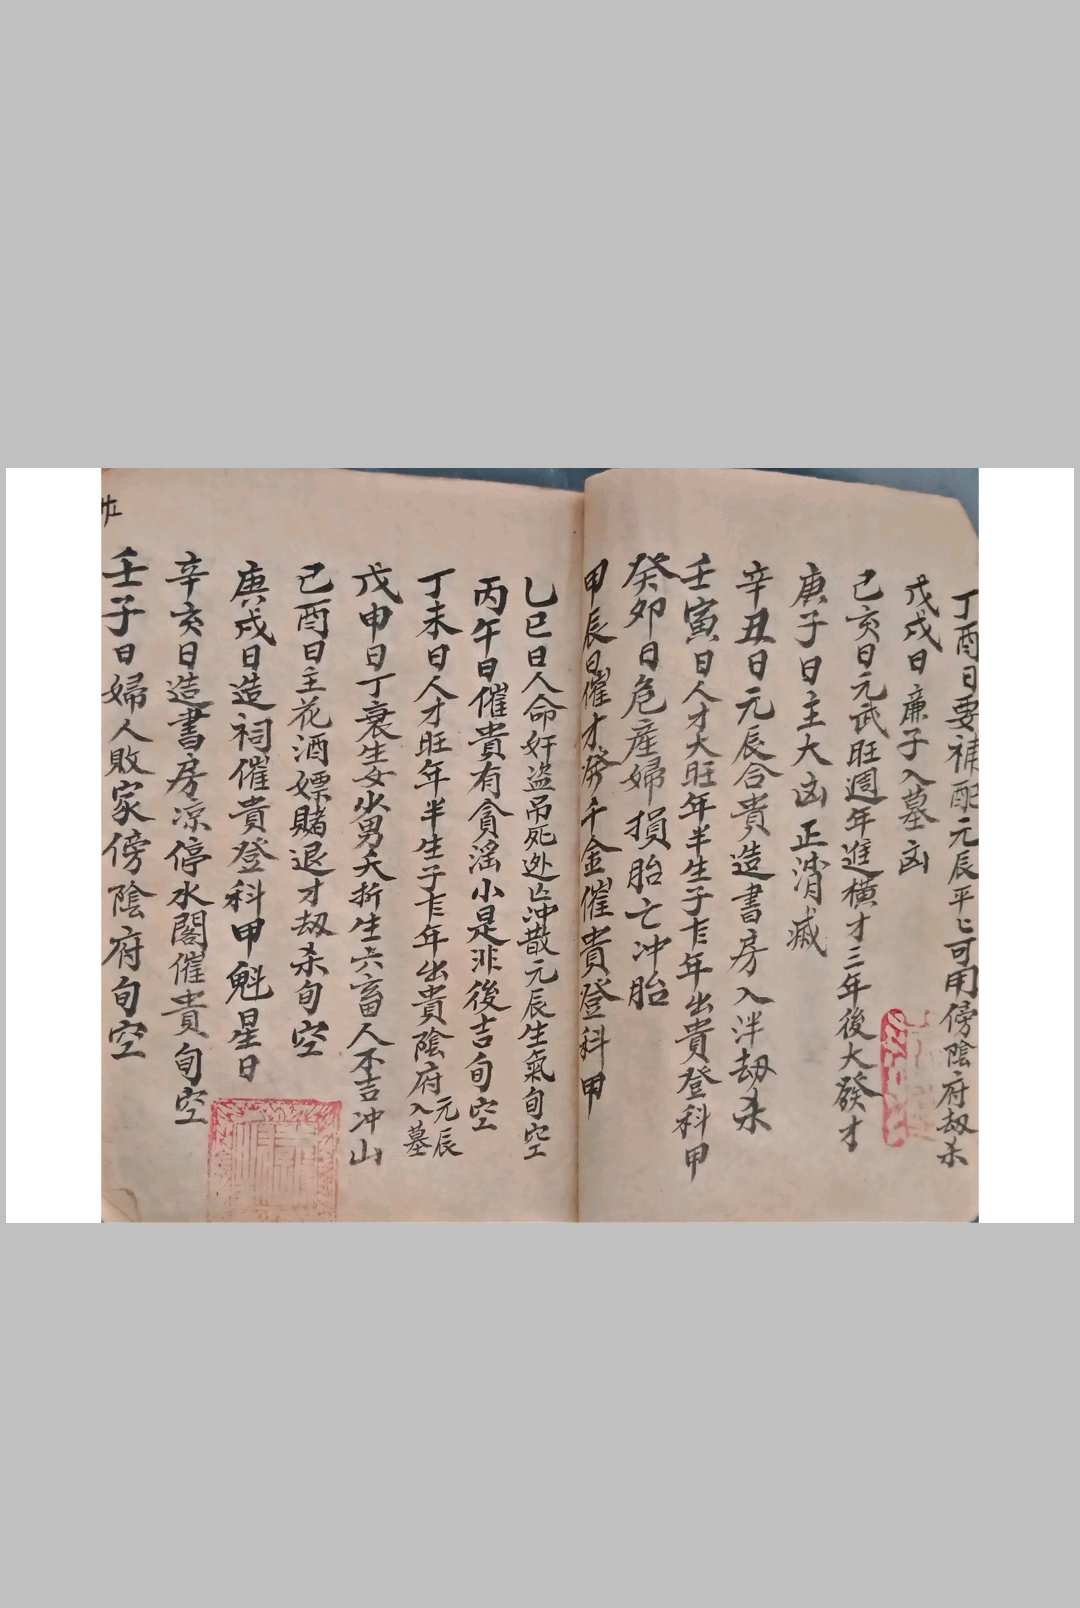 丁酉日要補配元辰平〻可用傍陰府刼杀
戊戌日廉子入墓凶
己亥日元武旺週年進横才三年後大發才
庚子日主大凶正消滅
辛丑日元辰合貴造書房入泮刼杀
壬寅日人才大旺年半生子乍年出貴登科甲
癸卯日危産婦損胎亡冲胎
甲辰日催才發千金催貴登科甲
乙巳日人命奸盗吊死外亡冲散元辰生氣旬空
丙午日催貴有貪滛小是非後吉旬空
丁未日人才旺年半生子乍年出貴陰府元辰入墓
戊申日丁衰生女少男夭折生六畜人不吉冲山
己酉日主花酒嫖賭退才刼杀旬空
庚戌日造祠催貴登科甲魁星日
辛亥日造書房凉停水閣催貴旬空
壬子日婦人敗家傍陰府旬空